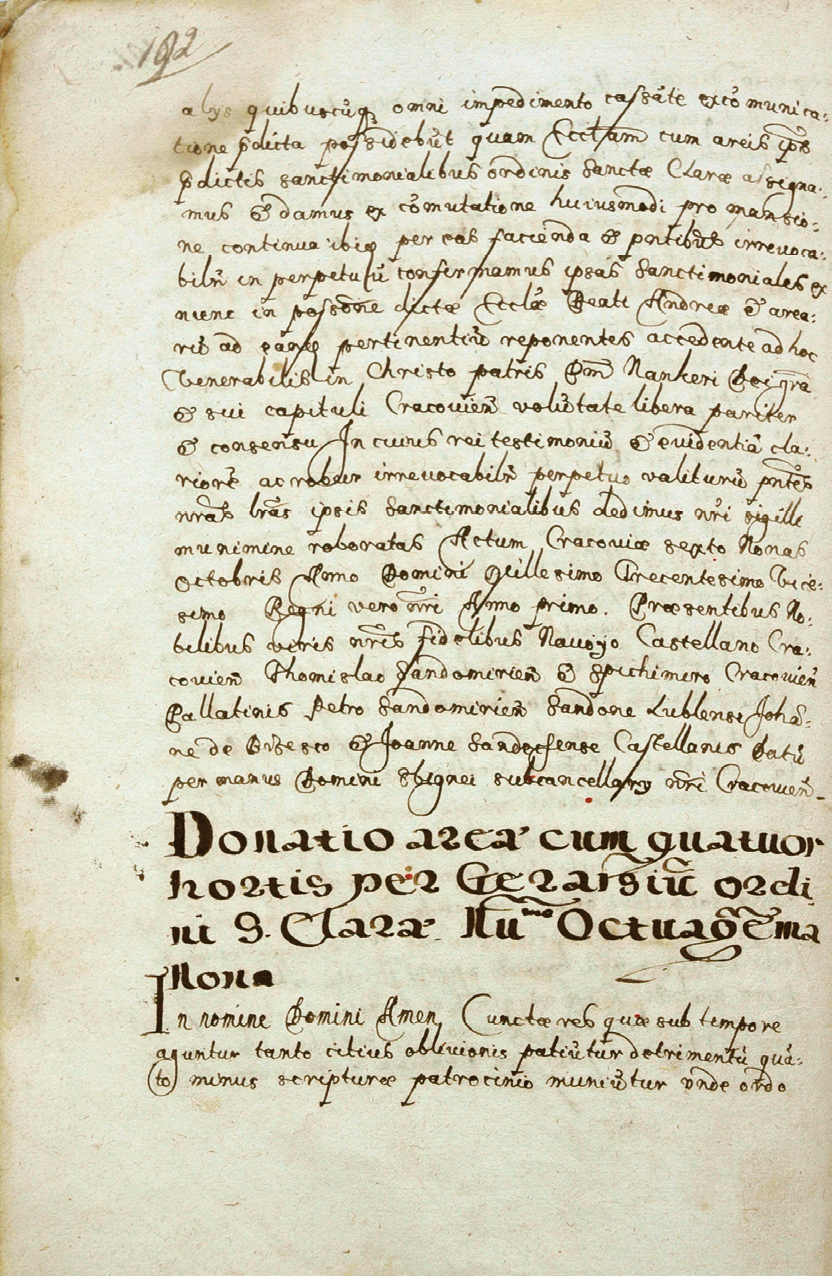 192
alys quibuscūq omni impedimento cassāte excōmunica-
tione p̄dicta possidebūt quam Eccīam cum areis ip̄s
p̄dictis sanctimonialibus ordinis Sanctæ Claræ assigna-
mus & damus ex cōmutatione huiusmodi pro mansio-
ne continua ibiq per eas facienda & pn̄tibus irrevoca-
bilr̄ in perpetuū confirmamus ipsas Sanctimoniales ex
nunc in possōne dictæ Ecclǣ Beati Andreæ & area-
rū ad eamq pertinentiū reponentes accedente ad hoc
Venerabilis in Christo patris Dm̄ Nankeri Dei grā
& sui capituli Cracovień volūtate libera pariter
& consensu In cuius rei testimoniū & evidentiā cla-
riorē ac robur irrevocabilr̄ perpetuo valiturū pn̄tes
nrās lrās ipsis Sanctimonialibus dedimus nr̄i sigilli
munimine roboratas Actum Cracoviæ sexto Nonas
Octobris Anno Domini Millesimo Trecentesimo Vice-
simo Regni vero nr̄i Anno primo. Præsentibus No-
bilibus viris nr̄is fidelibus Navojo Castellano Cra-
covień Thomislao Sandomirień & Spichimiro Cracovień
Pallatinis Petro Sandomirień Sandone Lublense Johā-
ne de Bisesco & Joanne Sandecsense Castellanis Datū
per manus Domini Sbignei subcancellary nr̄i Cracovień
Donatio areæ cum quatuor
hortis per Gerarsiū ordi
ni S. Claræ Nu͞mo Octuagēma
Nona
In nomine Domini Amen Cunctæ res quæ sub tempore
aguntur tanto citius oblivionis patiūtur detrimentū quā-
to minus scripturæ patrocinio muniūtur vnde ordo